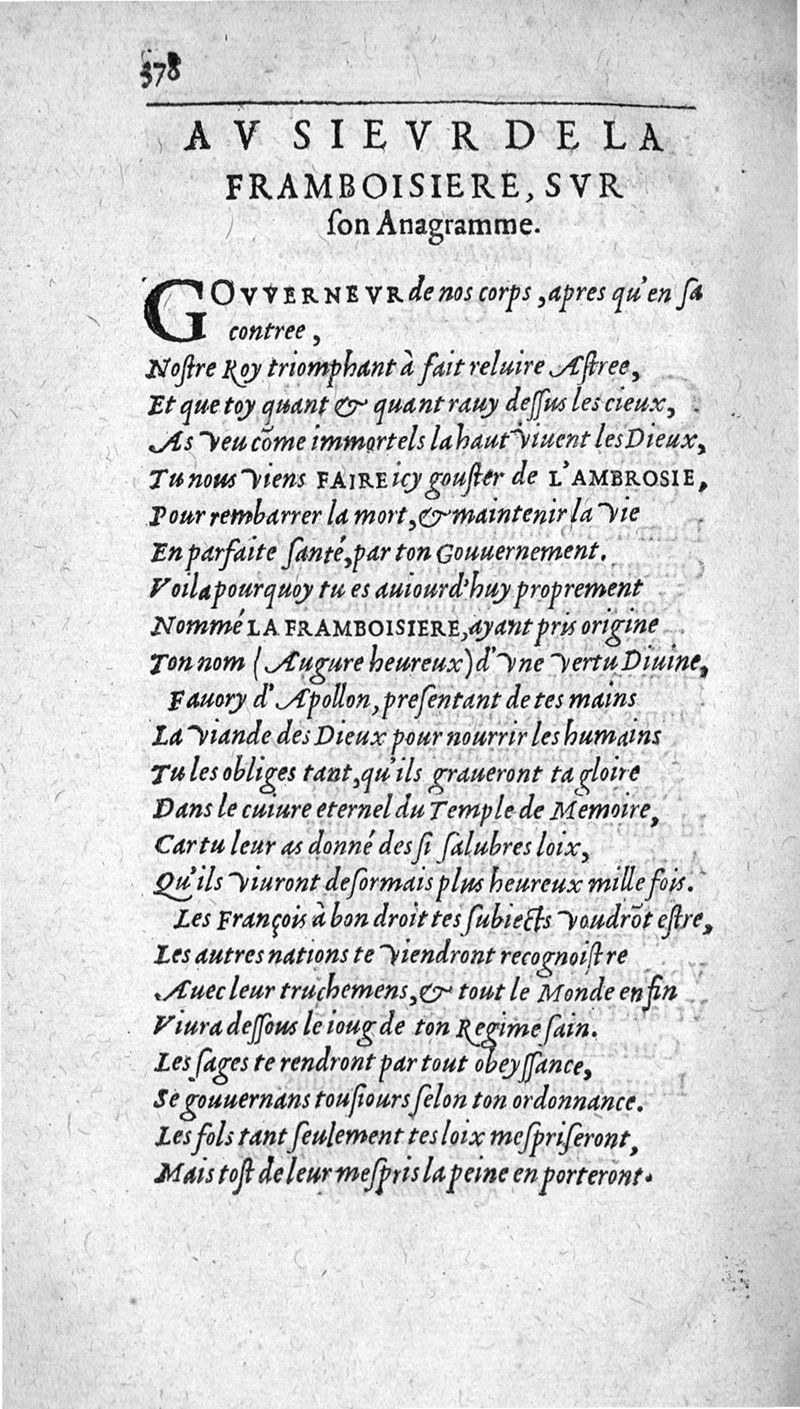 378
AV SIEVR DE LA
FRAMBOISIERE, SVR
ſon Anagramme.
GOVVERNEVR de nos corps, apres qu'en ſa
contree,
Noſtre Roy triomphant à fait reluire Aſtree,
Et que toy quant & quant rauy deſſus les cieux,
As veu cõme immortels la haut viuent les Dieux,
Tu nous viens FAIRE icy gouſter de L'AMBROSIE,
Pour rembarrer la mort, & maintenir la vie
En parfaite ſanté, par ton Gouuernement.
Voila pourquoy tu es auiourd'huy proprement
Nommé LA FRAMBOISIERE, ayant pris origine
Ton nom (Augure heureux) d'vne vertu Diuine,
Fauory d'Apollon, preſentant de tes mains
La viande des Dieux pour nourrir les humains
Tu les obliges tant, qu'ils graueront ta gloire
Dans le cuiure eternel du Temple de Memoire,
Car tu leur as donné des ſi ſalubres loix,
Qu'ils viuront deſormais plus heureux mille fois.
Les François à bon droit tes ſubiects voudrõt eſtre,
Les autres nations te viendront recognoiſtre
Auec leur truchemens, & tout le Monde en fin
Viura deſſous le ioug de ton Regime ſain.
Les ſages te rendront par tout obeyſſance,
Se gouuernans touſiours ſelon ton ordonnance.
Les fols tant ſeulement tes loix meſpriſeront,
Mais toſt de leur meſpris la peine en porteront.